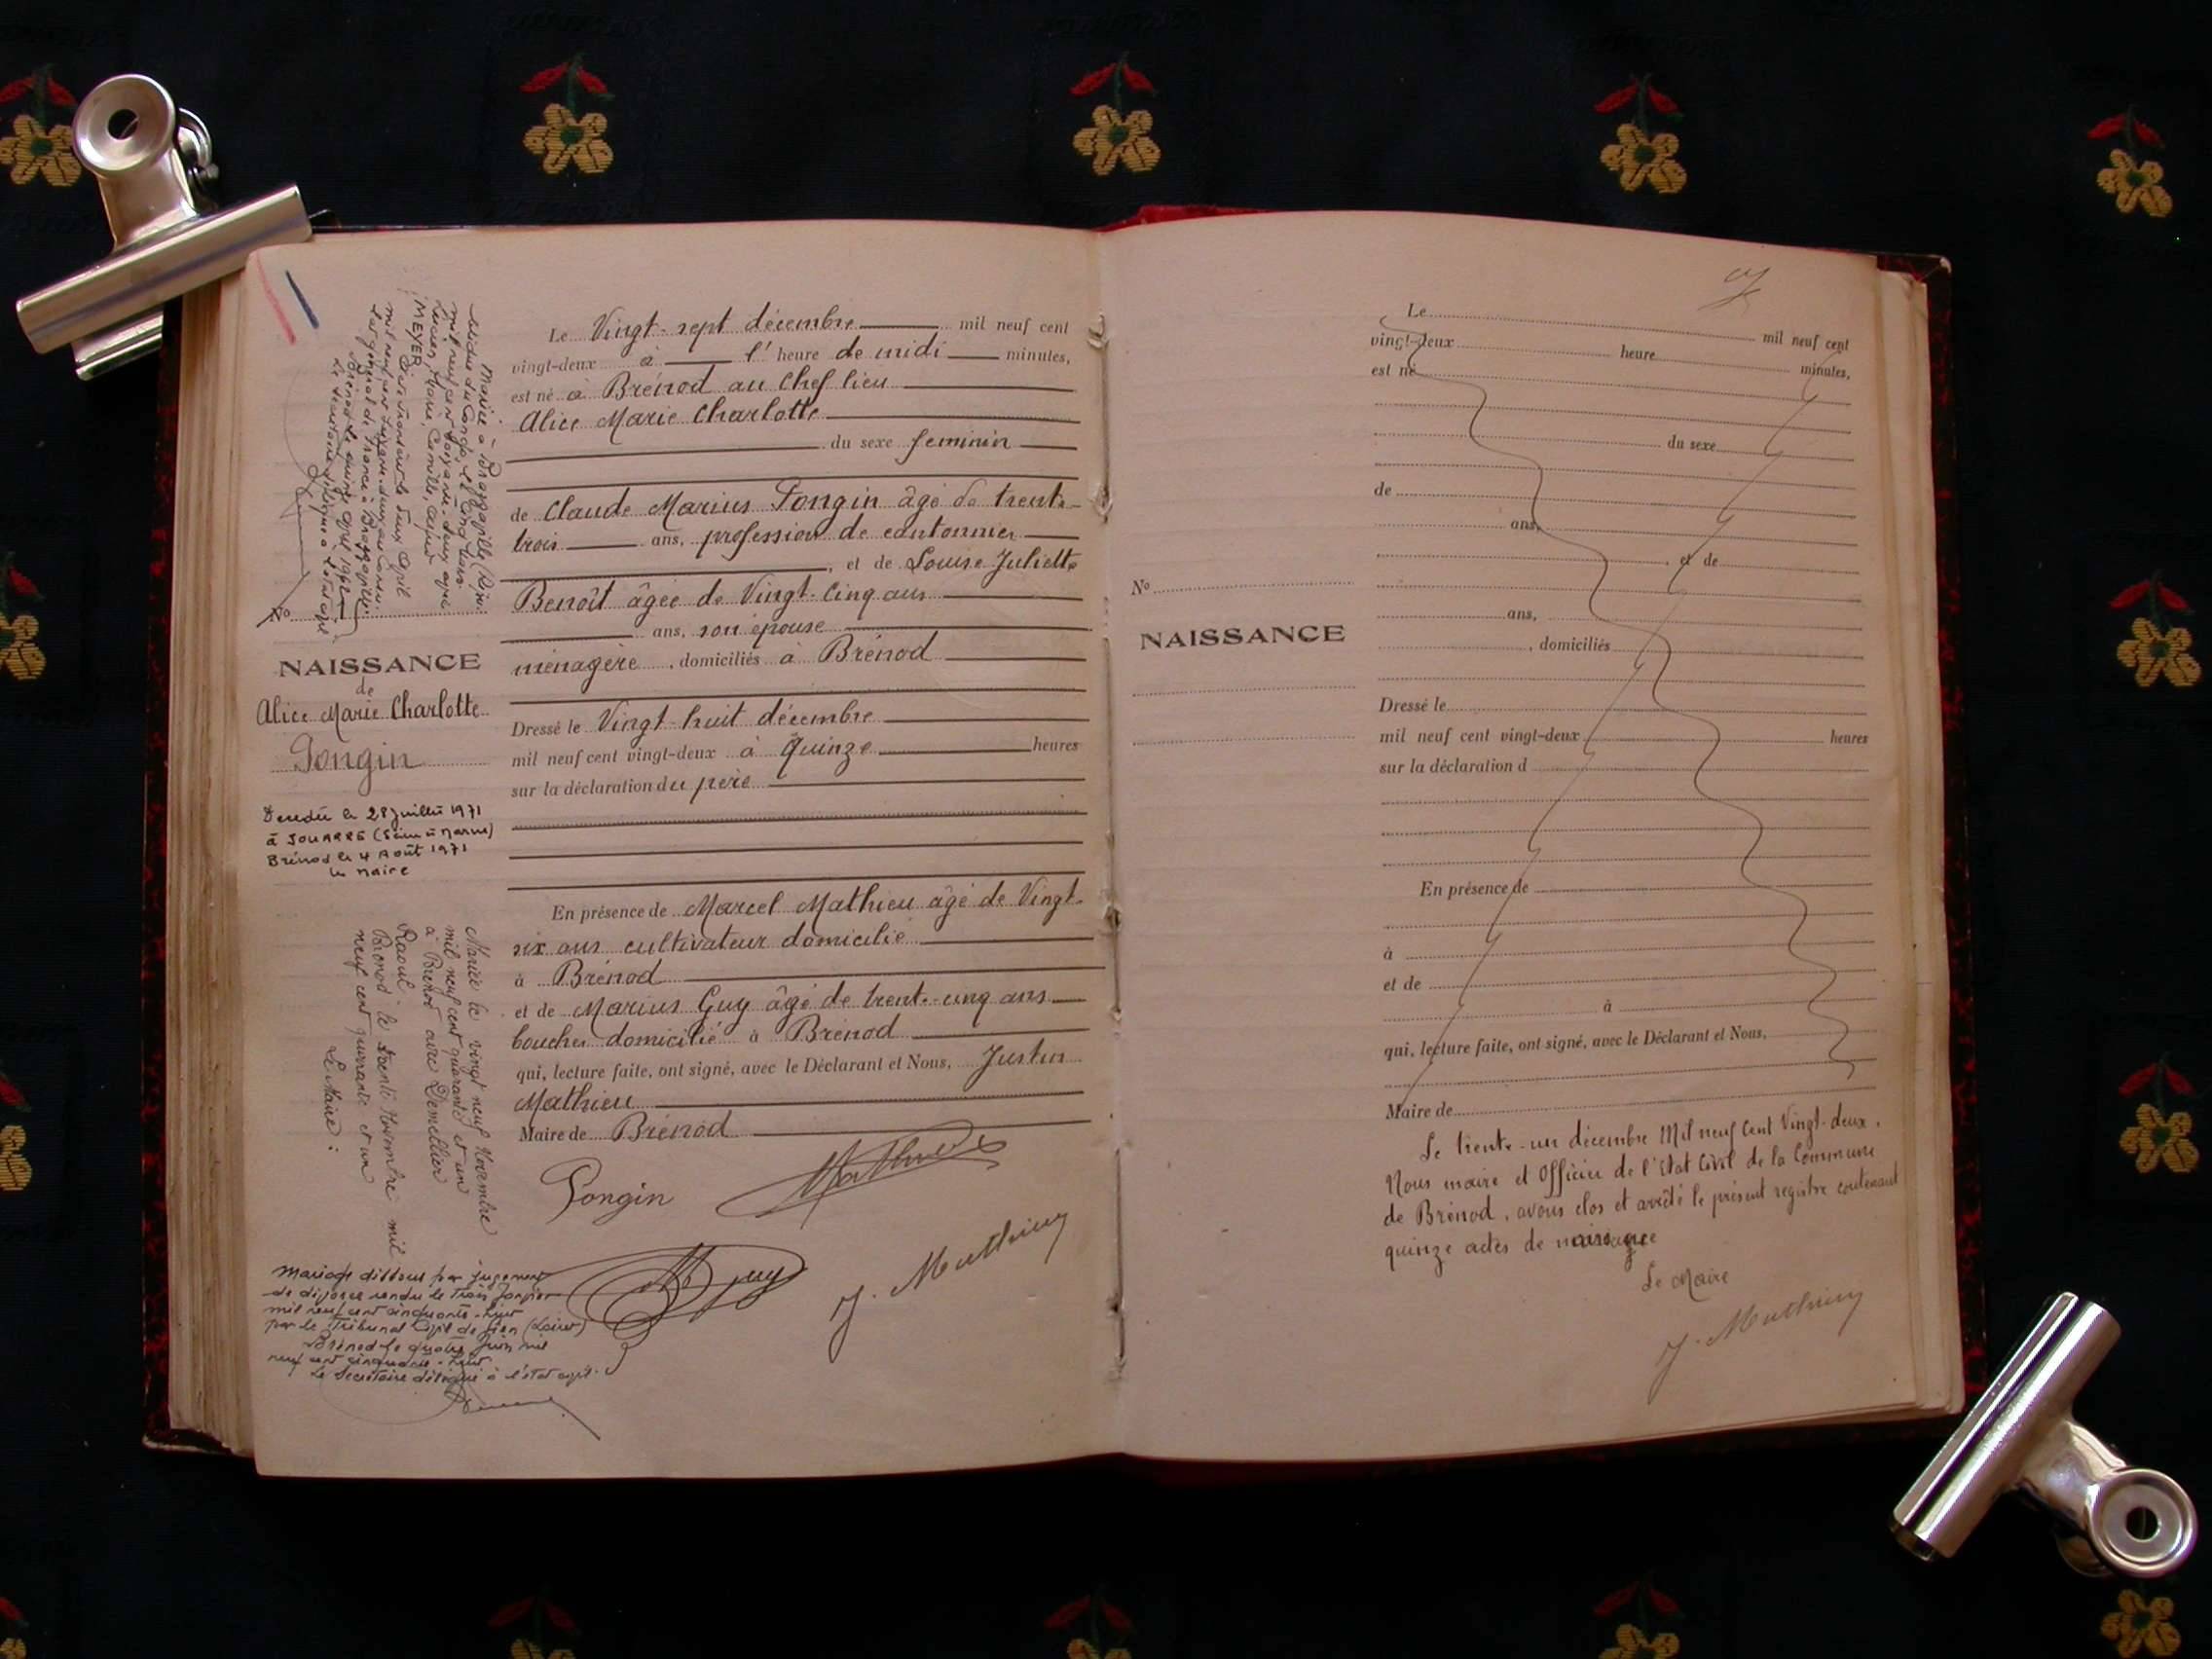 Mariée à Brazzaville (Répu-
blique du Congo) le cinq mars
mil neuf cent soixante-deux avec
Lucien, Marie, Camille,
MEYER
deux avril
Brénod le quinze avril 1962
Le secrétaire délégué à l'état civil
N°
NAISSANCE
de
Alice Marie Charlotte
Pongin
Décédée le 28 juillet 1971
à JOUARRE (Seine et Marne)
Brénod le 4 Août 1971
Le Maire
Mariée le vingt neuf Novembre
mil neuf cent quarante et un
à Brénod avec Demellier
Raoul. Brénod le trente Novembre mil
neuf cent quarante et un
Le Maire :
Mariage dissous par jugement
de divorce rendu le trois janvier
mil neuf cent cinquante-huit
par le Tribunal Civil de Gien (Loiret)
Brénod le quatre Juin mil
neuf cent cinquante-huit
Le Secrétaire délégué à l'état civil.
Le Vingt-sept décembre mil neuf cent
vingt-deux à l'heure de midi minutes,
est né à Brénod au Chef lieu
Alice Marie Charlotte
du sexe feminin
de Claude Marius Pongin âgé de trente-
trois ans, profession de cantonnier
, et de Louise Juliette
Benoît âgée de Vingt-Cinq ans
ans, son épouse
ménagère, domiciliés à Brénod
Dressé le Vingt-huit décembre
mil neuf cent vingt-deux à Quinze heures
sur la déclaration du père
En présence de Marcel Mathieu âgé de Vingt-
six ans cultivateur domicilié
à Brénod
et de Marius Guy âgé de trente-cinq ans
boucher domicilié à Brénod
qui, lecture faite, ont signé, avec le Déclarant et Nous, Justin
Mathieu
Maire de Brénod
Pongin Mathieu
M Guy J. Mathieu
N°
NAISSANCE
Le mil neuf cent
vingt-deux heure minutes,
est né
du sexe
de
ans,
, et de
ans,
, domiciliés
Dressé le
mil neuf cent vingt-deux heures
sur la déclaration d
En présence de
à
et de
à
qui, lecture faite, ont signé, avec le Déclarant et Nous,
Maire de
Le trente-un décembre Mil neuf Cent Vingt-deux,
Nous maire et Officier de l'Etat Civil de la Commune
de Brénod, avons clos et arrêté le présent registre contenant
quinze actes de naissance
Le Maire
J. Mathieu